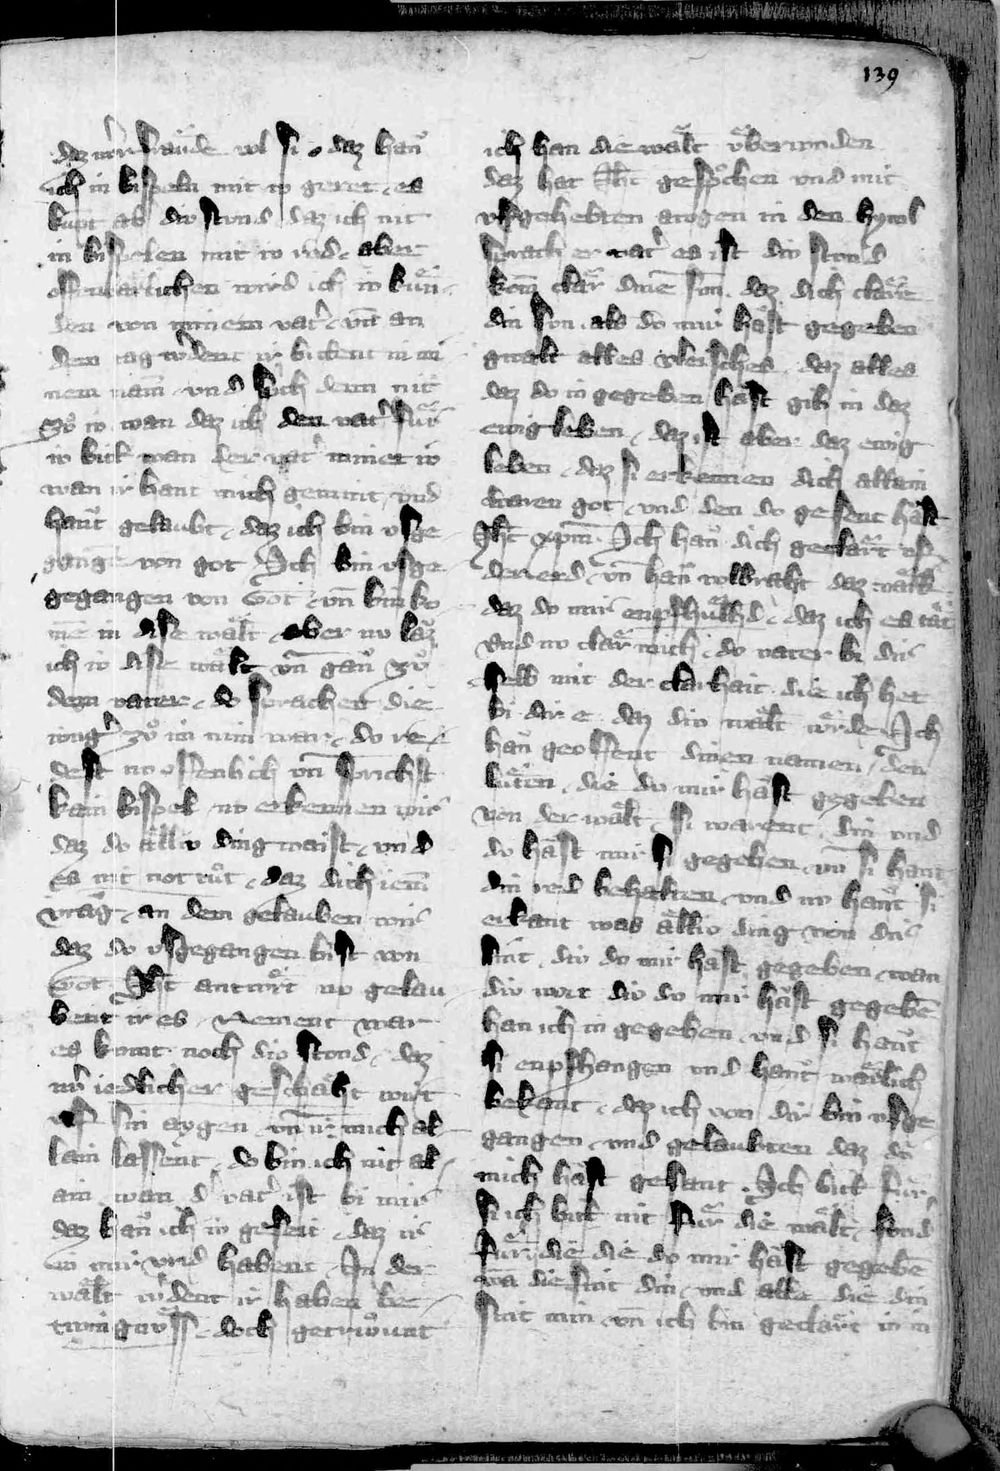 139
daz iwͬ fraͤude vol si . daz haͧn
ich in bispeln mit iv geret . es
kuͦpt ab div stvnd daz ich nit
in bispelen mit iv red . aber
offenwaͤrlichen wird ich iv kuͤn
den von minem vatͬ . vn̄ an
dem tag wͬdent ir bittent in mi
nem nam . vnd sp̄ch denn nit
zuͦ iv wan daz ich den vatͬ fuͤr
iv bitt wan der vatͬ minet iv
wan ir hant mich gemint . vnd
haͧnt gelaubt . daz ich bin vsge
gange von got Ich bin vsge
gegangen von Got . vn̄ bin ko
mē in dise waͤlt . aber nv laͧz
ich iv dise waͤlt vn̄ gaͧn zuͦ
dem vatter . do sprachent die
iungͬ zuͦ im nim war . do re
dest nv offenlich vn̄ sprichst
kain bispel . nv erkennen wir
daz do aͤlliv ding waist . vnd
es nit not tuͦt . daz dich iem̄
vraͧg . an dem gelauben wir
daz do vsgegangen bist von
Got Ih̄s antwͦrt nv gelau
bent ir es . Nement war
es komt noch div stond . daz
iwͬ iedlicher geschaͤht wirt
vf sin aygen . vn̄ ir mich al
lain lassent . do bin ich nit al
ain . wan dͬ vatͬ ist bi mir
daz haͧn ich iv geseit . daz ir
in mir vrid habent . In der
waͤlt wͬdent ir haben be
twingnuͤss . doch getrwͦuͦnt
ich han die waͤlt vͤberwnden
daz hat Ih̄s gespͦchen vnd mit
vfgehebten augen in den hymel
sprach er vatͬ es ist div stond
kom̄ claͤr dinē svn . daz dich claͤre
din svn . als do imir haͧst gegeben
gwalt alles vleisches . daz alles
daz do im gegeben haͧst gib in daz
ewig leben . daz ist aber daz ewig
leben . daz si erkennen dich allain
waren got . vnd den do gesent haͧst
Ih̄m xpm̄ . Ich haͧn dich geclaͤrt vf
der erd . vn̄ haͧn volbraht daz waͤrk
daz do mir enpfhuͤlhd . daz ich es taͤt
vnd nv claͤr mich . do vater bi dir
selb mit der clarhait . die ich het
bi dir e . daz div waͤlt wͤrde . Ich
haͧn geoffent dinen namen . den
luͤten . die do mir haͧst gegeben
von der waͤlt . si warent din vnd
do haͧst mir si gegeben . vn̄ si hant
din red behalten . vnd nv haͧnt si
erkant was aͤlliv ding von dir
sint . div do mir haͧst gegeben . wan
div wort div do mir haͧst gegebē
han ich in gegeben . vnd si haͧnt
si enpfhangen vnd haͧnt waͤrlich
bekant . daz ich von dir bin vsge
gangen . vnd gelaubten daz dv̄
mich haͧst gesant . Ich bitt fuͤr
si ich bitt nit fuͤr die waͤlt . sond
fuͤr die die do mir haͧst gegebē
wā die sint din . vnd alle die din
sint min . vn̄ ich bin geclaͤrt in in